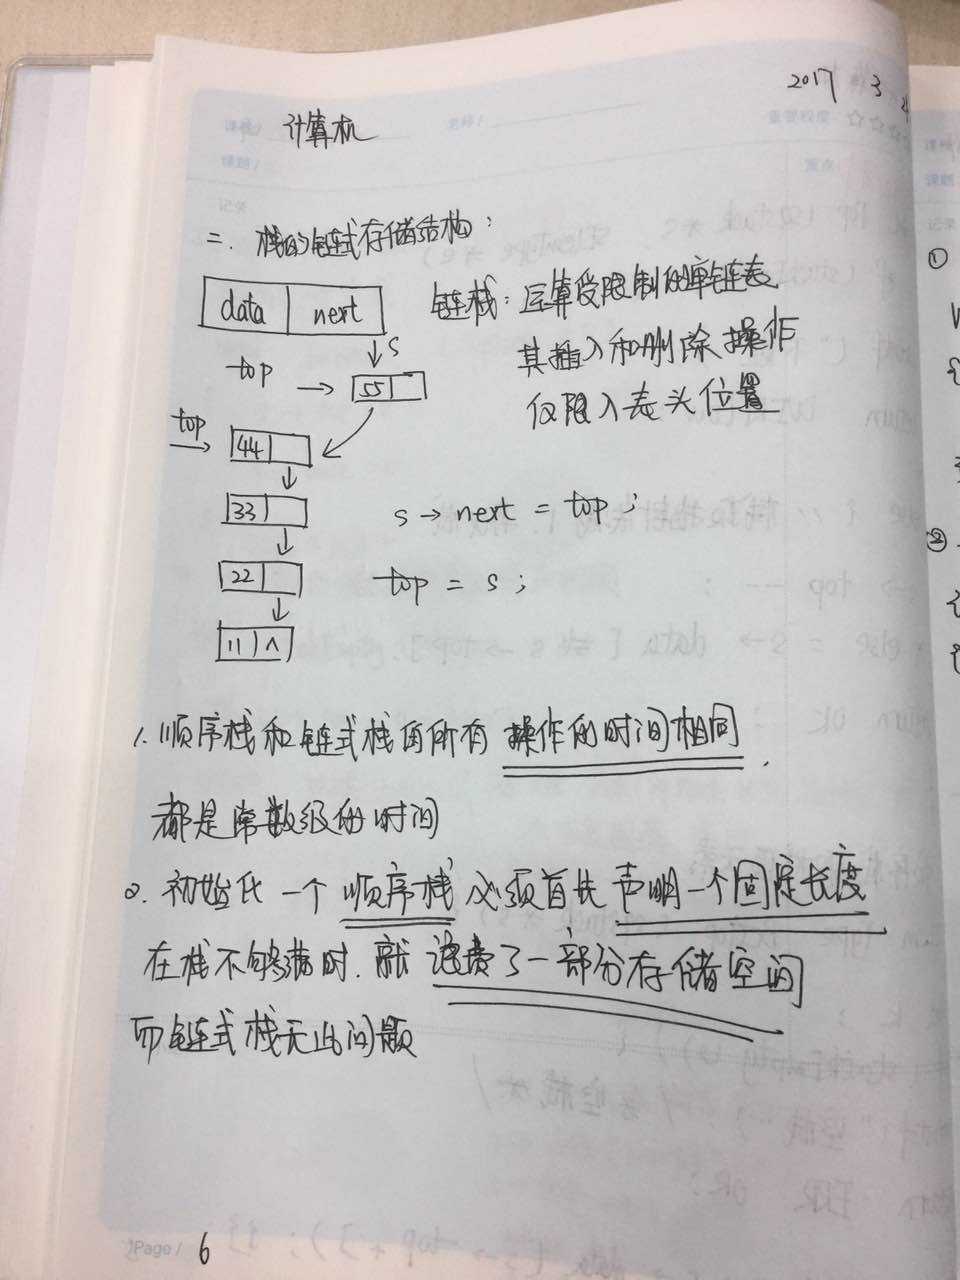 2017 3
课程/ 计算机
老师/
重要程度
课题/
重点
记录
二. 栈的链式存储结构:
data next
链栈: 运算受限制的单链表
其插入和删除操作
仅限入表头位置
s
top
55
top
44
33
s → next = top;
22
top = s;
11 ∧
1. 顺序栈和链式栈的所有操作的时间相同.
都是常数级的时间
2. 初始化一个顺序栈必须首先声明一个固定长度
在栈不够满时. 就浪费了一部分存储空间
而链式栈无此问题
Page / 6
课程/
课题/
记录
①
②